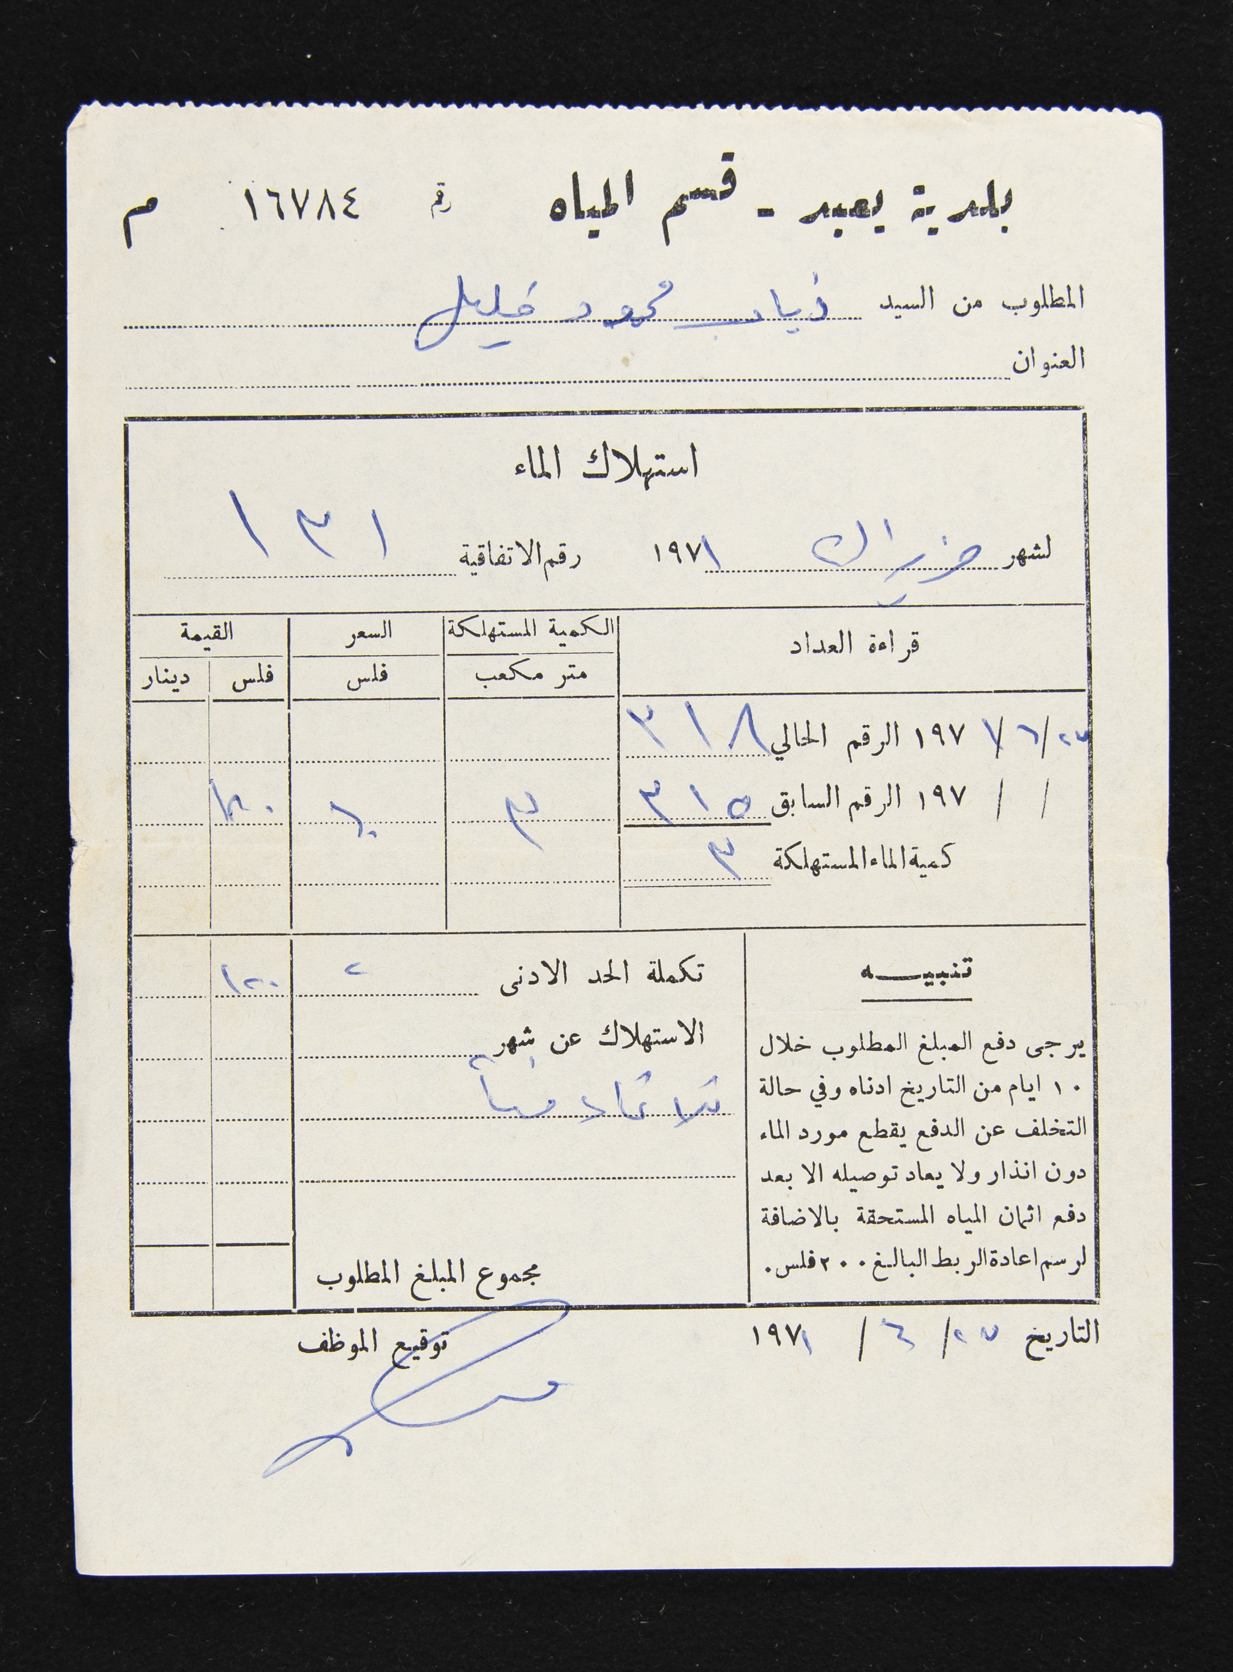 بلدية يعبد - قسم المياه رقم ١٦٧٨٤ م
المطلوب من السيد ذياب محمود خليل
العنوان
استهلاك الماء
لشهر حزيران ١٩٧١ رقم الاتفاقية ١٣١
قراءة العداد الكمية المستهلكة السعر القيمة
متر مكعب فلس فلس دينار
٢٧/٦/١٩٧١ الرقم الحالي ٣١٨
/ / ١٩٧ الرقم السابق ٣١٥ ٣ ٦٠ ١٨٠
كمية الماء المستهلكة ٣
تنبيه
يرجى دفع المبلغ المطلوب خلال
١٠ ايام من التاريخ ادناه وفي حالة
التخلف عن الدفع يقطع مورد الماء
دون انذار ولا يعاد توصيله الا بعد
دفع اثمان المياه المستحقة بالاضافة
لرسم اعادة الربط البالغ ٢٠٠ فلس.
تكملة الحد الادنى ٢ ١٢٠
الاستهلاك عن شهر
مجموع المبلغ المطلوب
التاريخ ٢٧/٦/١٩٧١
توقيع الموظف